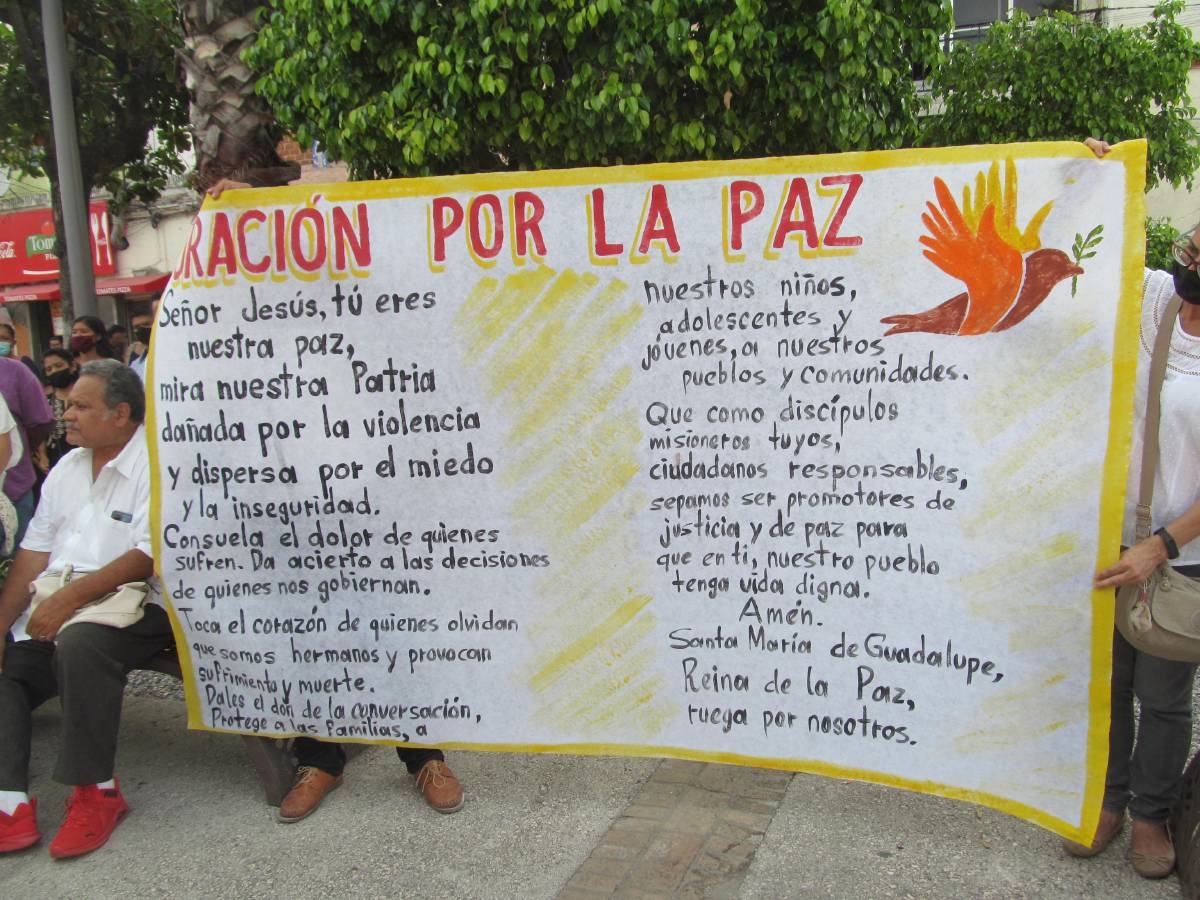 ORACIÓN POR LA PAZ
Señor Jesús, tú eres
nuestra paz,
mira nuestra Patria
dañada por la violencia
y dispersa por el miedo
y la inseguridad.
Consuela el dolor de quienes
sufren. Da acierto a las decisiones
de quienes nos gobiernan.
Toca el corazón de quienes olvidan
que somos hermanos y provocan
sufrimiento y muerte.
Dales el don de la conversación,
Protege a las familias, a
nuestros niños,
adolescentes y
jóvenes, a nuestros
pueblos y comunidades.
Que como discípulos
misioneros tuyos,
ciudadanos responsables,
sepamos ser promotores de
justicia y de paz para
que en ti, nuestro pueblo
tenga vida digna.
Amén.
Santa María de Guadalupe,
Reina de la Paz,
ruega por nosotros.